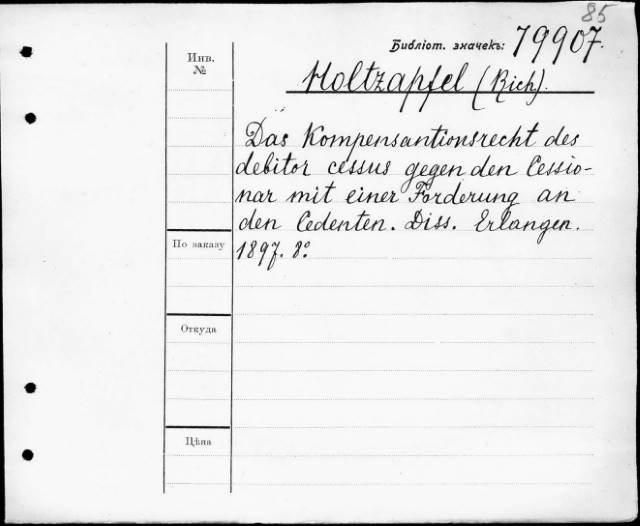 85
Библіот. значекъ: 79907.
Инв.
№
Holtzapfel (Rich).
Das Kompensantionsrecht des
debitor cessus gegen den Cessio-
nar mit einer Forderung an
den Cedenten. Diss. Erlangen.
1897. 8°.
По заказу
Откуда
Цѣна